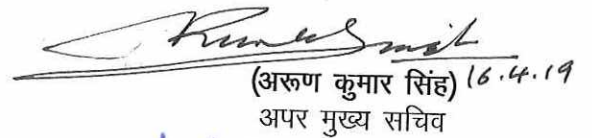 (अरूण कुमार सिंह) 16.4.19
अपर मुख्य सचिव